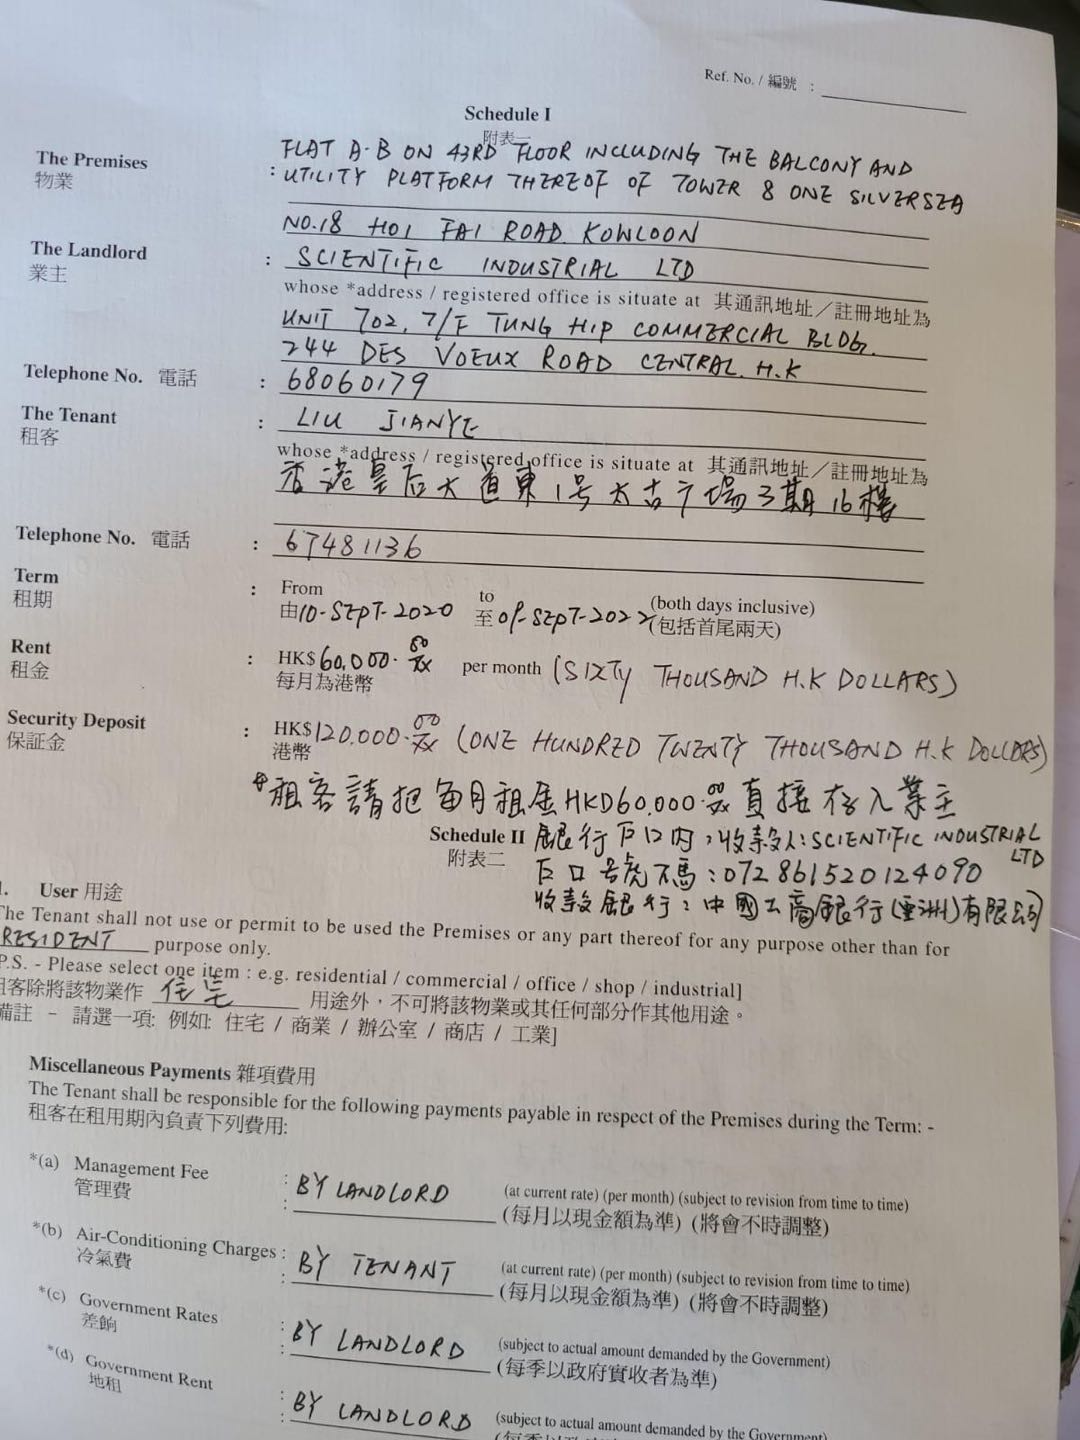 Ref. No. / 編號 :
Schedule I
附表一
The Premises
物業
: FLAT A-B ON 43RD FLOOR INCLUDING THE BALCONY AND
UTILITY PLATFORM THEREOF OF TOWER 8 ONE SILVERSEA
NO.18 HOI FAI ROAD. KOWLOON
The Landlord
業主
: SCIENTIFIC INDUSTRIAL LTD
whose *address / registered office is situate at 其通訊地址／註冊地址為
UNIT 702, 7/F TUNG HIP COMMERCIAL BLDG.
244 DES VOEUX ROAD CENTRAL. H.K
Telephone No. 電話 : 68060179
The Tenant
租客
: LIU JIANYE
whose *address / registered office is situate at 其通訊地址／註冊地址為
香港皇后大道東1号太古廣場3期16樓
Telephone No. 電話 : 67481136
Term
租期
: From 由 10-SEPT-2020 to 至 09-SEPT-2022 (both days inclusive)
(包括首尾兩天)
Rent
租金
: HK$ 60,000.00/xx per month (SIXTY THOUSAND H.K DOLLARS)
每月為港幣
Security Deposit
保証金
: HK$ 120,000.00/xx (ONE HUNDRED TWENTY THOUSAND H.K DOLLORS)
港幣
*租客請把每月租金HKD60,000.00/xx直接存入業主
Schedule II 銀行戶口内，收款人:SCIENTIFIC INDUSTRIAL LTD
附表二 戶口号碼:072861520124090
收款銀行:中國工商銀行(亞洲)有限公司
User 用途
The Tenant shall not use or permit to be used the Premises or any part thereof for any purpose other than for
RESIDENT purpose only.
P.S. - Please select one item : e.g. residential / commercial / office / shop / industrial]
租客除將該物業作 住宅 用途外，不可將該物業或其任何部分作其他用途。
備註 - 請選一項: 例如: 住宅 / 商業 / 辦公室 / 商店 / 工業]
Miscellaneous Payments 雜項費用
The Tenant shall be responsible for the following payments payable in respect of the Premises during the Term: -
租客在租用期內負責下列費用:
*(a) Management Fee : BY LANDLORD (at current rate) (per month) (subject to revision from time to time)
管理費 : (每月以現金額為準) (將會不時調整)
*(b) Air-Conditioning Charges : BY TENANT (at current rate) (per month) (subject to revision from time to time)
冷氣費 : (每月以現金額為準) (將會不時調整)
*(c) Government Rates : BY LANDLORD (subject to actual amount demanded by the Government)
差餉 : (每季以政府實收者為準)
*(d) Government Rent : BY LANDLORD (subject to actual amount demanded by the Government)
地租 :